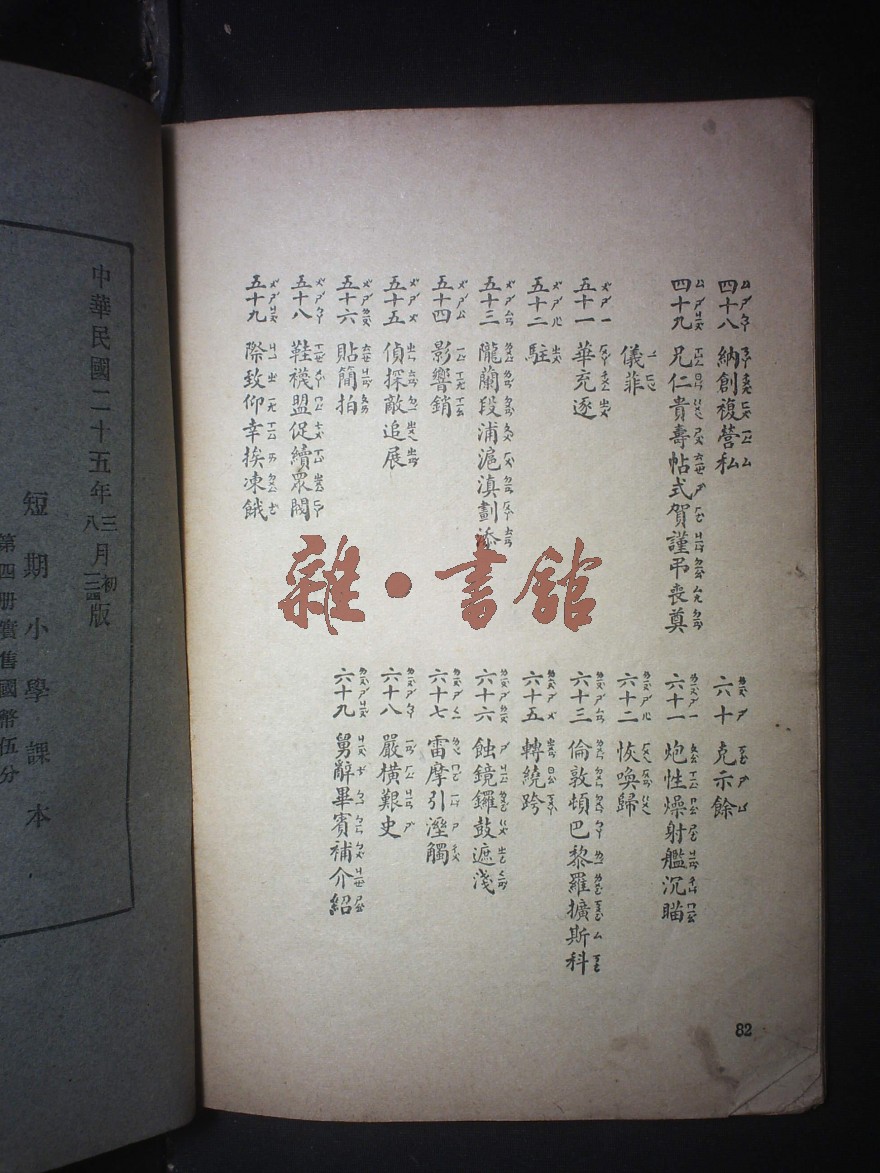 四十八 納創複營私
四十九 兄仁貴壽帖式賀謹弔喪奠
儀菲
五十一 華充逐
五十二 駐
五十三 隴蘭段浦滬滇劃添
五十四 影響銷
五十五 偵探敵追展
五十六 貼簡拍
五十八 鞋襪盟促續眾閥
五十九 際致仰幸挨凍餓
六十 克示餘
六十一 炮性燥射艦沉瞄
六十二 恢喚歸
六十三 倫敦頓巴黎羅擴斯科
六十五 轉繞跨
六十六 蝕鏡鑼鼓遮淺
六十七 雷摩引溼觸
六十八 嚴橫艱史
六十九 舅辭畢賓補介紹
82
雜·書館
中華民國二十五年三八月初三四版
短期小學課本
第四册實售國幣伍分